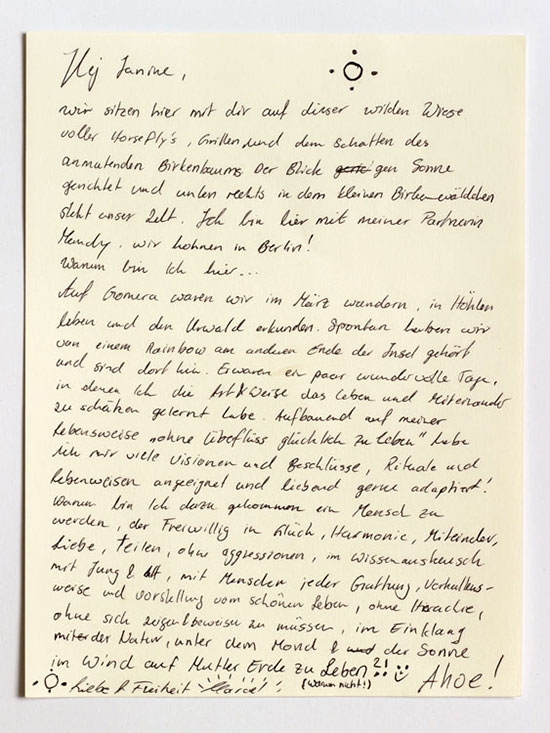 Hej Janine,
wir sitzen hier mit dir auf dieser wilden Wiese
voller Horsefly's, Grillen und dem Schatten des
anmutenden Birkenbaums Der Blick gen Sonne
gerichtet und unten rechts in dem kleinen Birkenwäldchen
steht unser Zelt. Ich bin hier mit meiner Partnerin
Mandy. wir wohnen in Berlin!
Warum bin Ich hier...
Auf Gomera waren wir im März wandern, in Höhlen
leben und den Urwald erkunden. Spontan haben wir
von einem Rainbow am anderen Ende der Insel gehört
und sind dort hin. Er waren ein paar wundervolle Tage,
in denen Ich die Art & Weise das Leben und Miteinander
zu schätzen gelernt habe. Aufbauend auf meiner
Lebensweise „ohne Überfluss glücklich zu leben" habe
ich mir viele Visionen und Beschlüsse, Rituale und
Lebensweisen angeeignet und liebend gerne adaptiert!
Warum bin Ich dazu gekommen ein Mensch zu
werden, der Freiwillig in Glück, Harmonie, Miteinander,
Liebe, Teilen, ohne aggressionen, im Wissensaustausch
mit Jung & Alt, mit Menschen jeder Gattung, Verhaltens-
weise und Vorstellung vom schönen Leben, ohne
ohne sich zeigen & beweisen zu müssen, im Einklang
mit der Natur, unter dem Mond & der Sonne
im Wind auf Mutter Erde zu Leben?!
Liebe & Freiheit (warum nicht!) Ahoe!